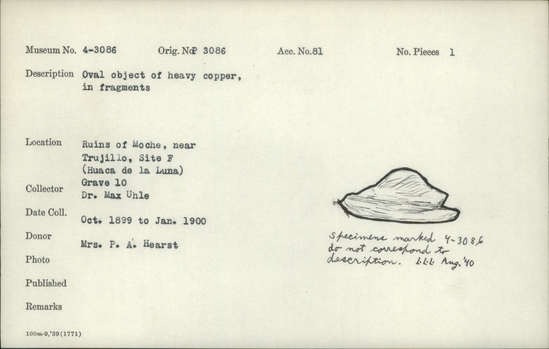 Museum No. 4-3086 Orig. No. P 3086 Acc. No. 81 No. Pieces 1
Description Oval object of heavy copper,
in fragments
Location Ruins of Moche, near
Trujillo, Site F
(Huaca de la Luna)
Grave 10
Collector Dr. Max Uhle
Date Coll. Oct. 1899 to Jan. 1900
Donor Mrs. P. A. Hearst
Photo
Published
Remarks
100m-9,'39(1771)
specimens marked 4-3086
do not correspond to
description. bbb Aug. '40